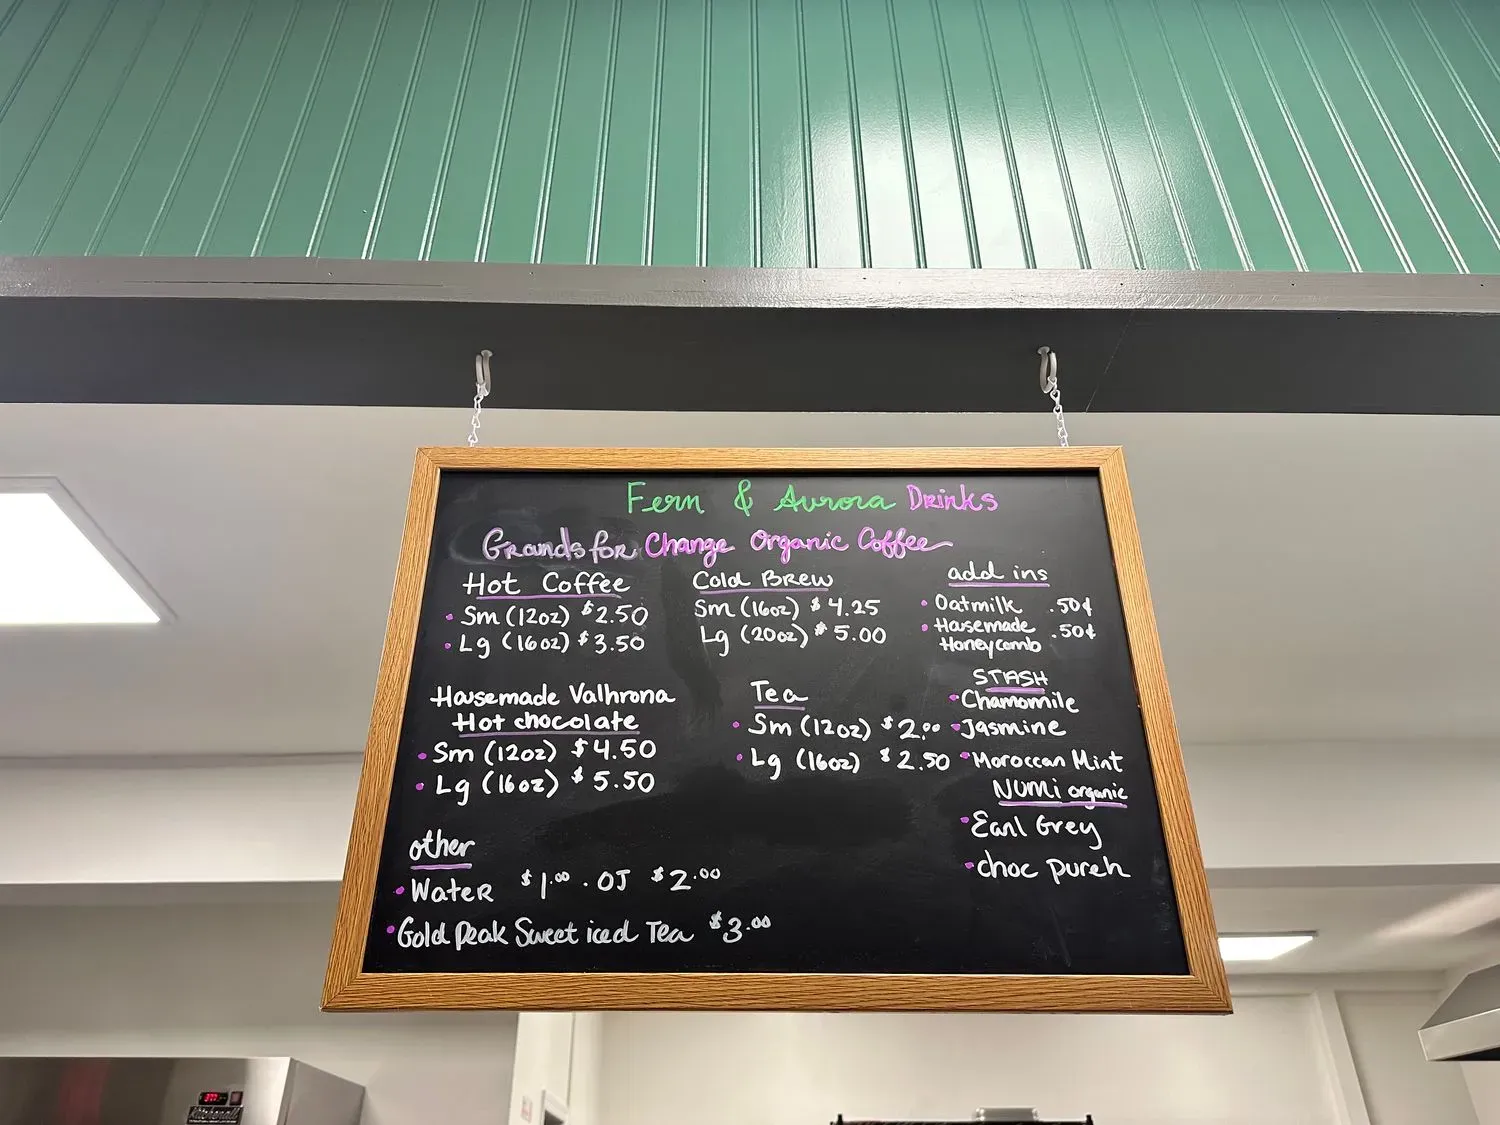 Fern & Aurora Drinks
Grounds for Change Organic Coffee
Hot Coffee
• Sm (12oz) $2.50
• Lg (16oz) $3.50
Cold Brew
Sm (16oz) $4.25
Lg (20oz) $5.00
add ins
• Oatmilk .50¢
• Housemade .50¢
Honeycomb
Housemade Valhrona
Hot chocolate
• Sm (12oz) $4.50
• Lg (16oz) $5.50
Tea
• Sm (12oz) $2.00
• Lg (16oz) $2.50
STASH
• Chamomile
• Jasmine
• Moroccan Mint
NUMi organic
• Earl Grey
• choc pureh
other
• Water $1.00 . OJ $2.00
• Gold Peak Sweet iced Tea $3.00